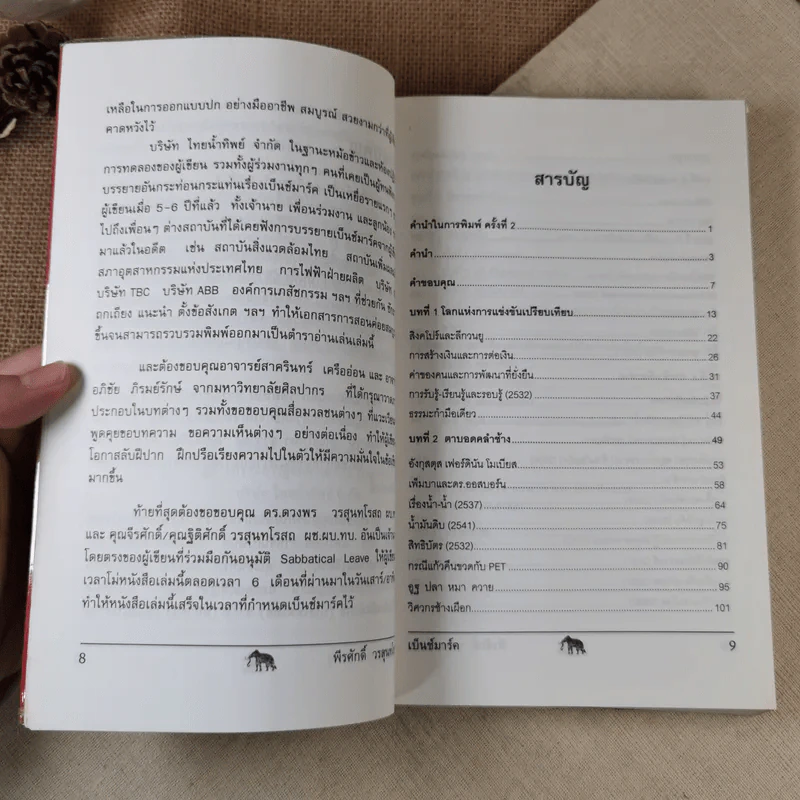 เหลือในการออกแบบปก อย่างมืออาชีพ สมบูรณ์ สวยงามกว่าที่
คาดหวังไว้
บริษัท ไทยน้ำทิพย์ จำกัด ในฐานะหม้อข้าวและ
การทดลองของผู้เขียน รวมทั้งผู้ร่วมงานทุกๆ คนที่เคยเป็นผู้
บรรยายอันกระท่อนกระแท่นเรื่องเบ็นช์มาร์ค เป็นเหยื่อรายแรกๆ
ผู้เขียนเมื่อ 5-6 ปีที่แล้ว ทั้งเจ้านาย เพื่อนร่วมงาน และลูกน้อง
ไปถึงเพื่อนๆ ต่างสถาบันที่ได้เคยฟังการบรรยายเบ็นช์มาร์คจาก
มาแล้วในอดีต เช่น สถาบันสิ่งแวดล้อมไทย สถาบันเพิ่มผล
สภาอุตสาหกรรมแห่งประเทศไทย การไฟฟ้าฝ่ายผลิต บริษัท
บริษัท TBC บริษัท ABB องค์การเภสัชกรรม ฯลฯ ที่ช่วยกัน
ถกเถียง แนะนำ ตั้งข้อสังเกต ฯลฯ ทำให้เอกสารการสอนค่อย
ขึ้นจนสามารถรวบรวมพิมพ์ออกมาเป็นตำราอ่านเล่นเล่มนี้
และต้องขอบคุณอาจารย์สาครินทร์ เครืออ่อน และ
อภิชัย ภิรมย์รักษ์ จากมหาวิทยาลัยศิลปากร ที่ได้กรุณา
ประกอบในบทต่างๆ รวมทั้งขอขอบคุณสื่อมวลชนต่างๆ ที่แวะเวียน
พูดคุยขอบทความ ขอความเห็นต่างๆ อย่างต่อเนื่อง ทำให้
โอกาสลับฝีปาก ฝึกปรือเรียงความไปในตัวให้มีความมั่นใจในข้อ
มากขึ้น
ท้ายที่สุดต้องขอขอบคุณ ดร.ดวงพร วรสุนทโรสถ ผบ.
และ คุณจีรศักดิ์/คุณฐิติศักดิ์ วรสุนทโรสถ ผช.ผบ.ทบ. อันเป็น
โดยตรงของผู้เขียนที่ร่วมมือกันอนุมัติ Sabbatical Leave ให้ผู้
เวลาโม่หนังสือเล่มนี้ตลอดเวลา 6 เดือนที่ผ่านมาในวันเสาร์/
ทำให้หนังสือเล่มนี้เสร็จในเวลาที่กำหนดเบ็นช์มาร์คไว้
8 พีรศักดิ์ วรสุนทโ
สารบัญ
คำนำในการพิมพ์ ครั้งที่ 2 1
คำนำ 3
คำขอบคุณ 7
บทที่ 1 โลกแห่งการแข่งขันเปรียบเทียบ 13
สิงคโปร์และลีกวนยู 22
การสร้างเงินและการต่อเงิน 26
ค่าของคนและการพัฒนาที่ยั่งยืน 31
การรับรู้-เรียนรู้และรอบรู้ (2532) 37
ธรรมะกำมือเดียว 44
บทที่ 2 ตาบอดคลำช้าง 49
อังกุสตุส เฟอร์ดินัน โมเบียส 53
เพ็มบาและดร.ออสบอร์น 58
เรื่องน้ำ-น้ำ (2537) 64
น้ำมันดิบ (2541) 75
สิทธิบัตร (2532) 81
กรณีแก้วคืนขวดกับ PET 90
อูฐ ปลา หมา ควาย 95
วิศวกรช้างเผือก 101
เบ็นช์มาร์ค 9